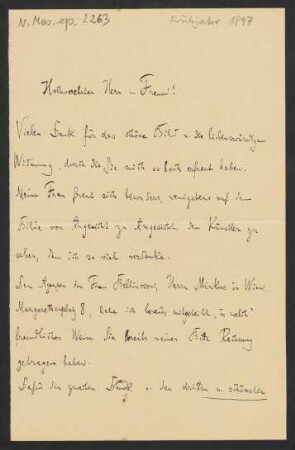 N. Mus. ep. 2263
Frühjahr 1897
Hochverehrter Herr u. Freund!
Vielen Dank für das schöne Bild u. die liebenswürdige
Widmung, durch die Sie mich so hoch erfreut haben.
Meine Frau freut sich besonders, wenigstens auf dem
Bilde von Angesicht zu Angesicht den Künstler zu
sehen, dem ich so viel verdanke.
Dem Agenten der Frau Bellincioni, Herrn Minkus in Wien
Margarethenplatz 8, habe ich bereits mitgeteilt, in welch
freundlicher Weise Sie bereits meiner Bitte Rechnung
getragen haben.
Dafür den zweiten Dank u. den dritten u. schönsten